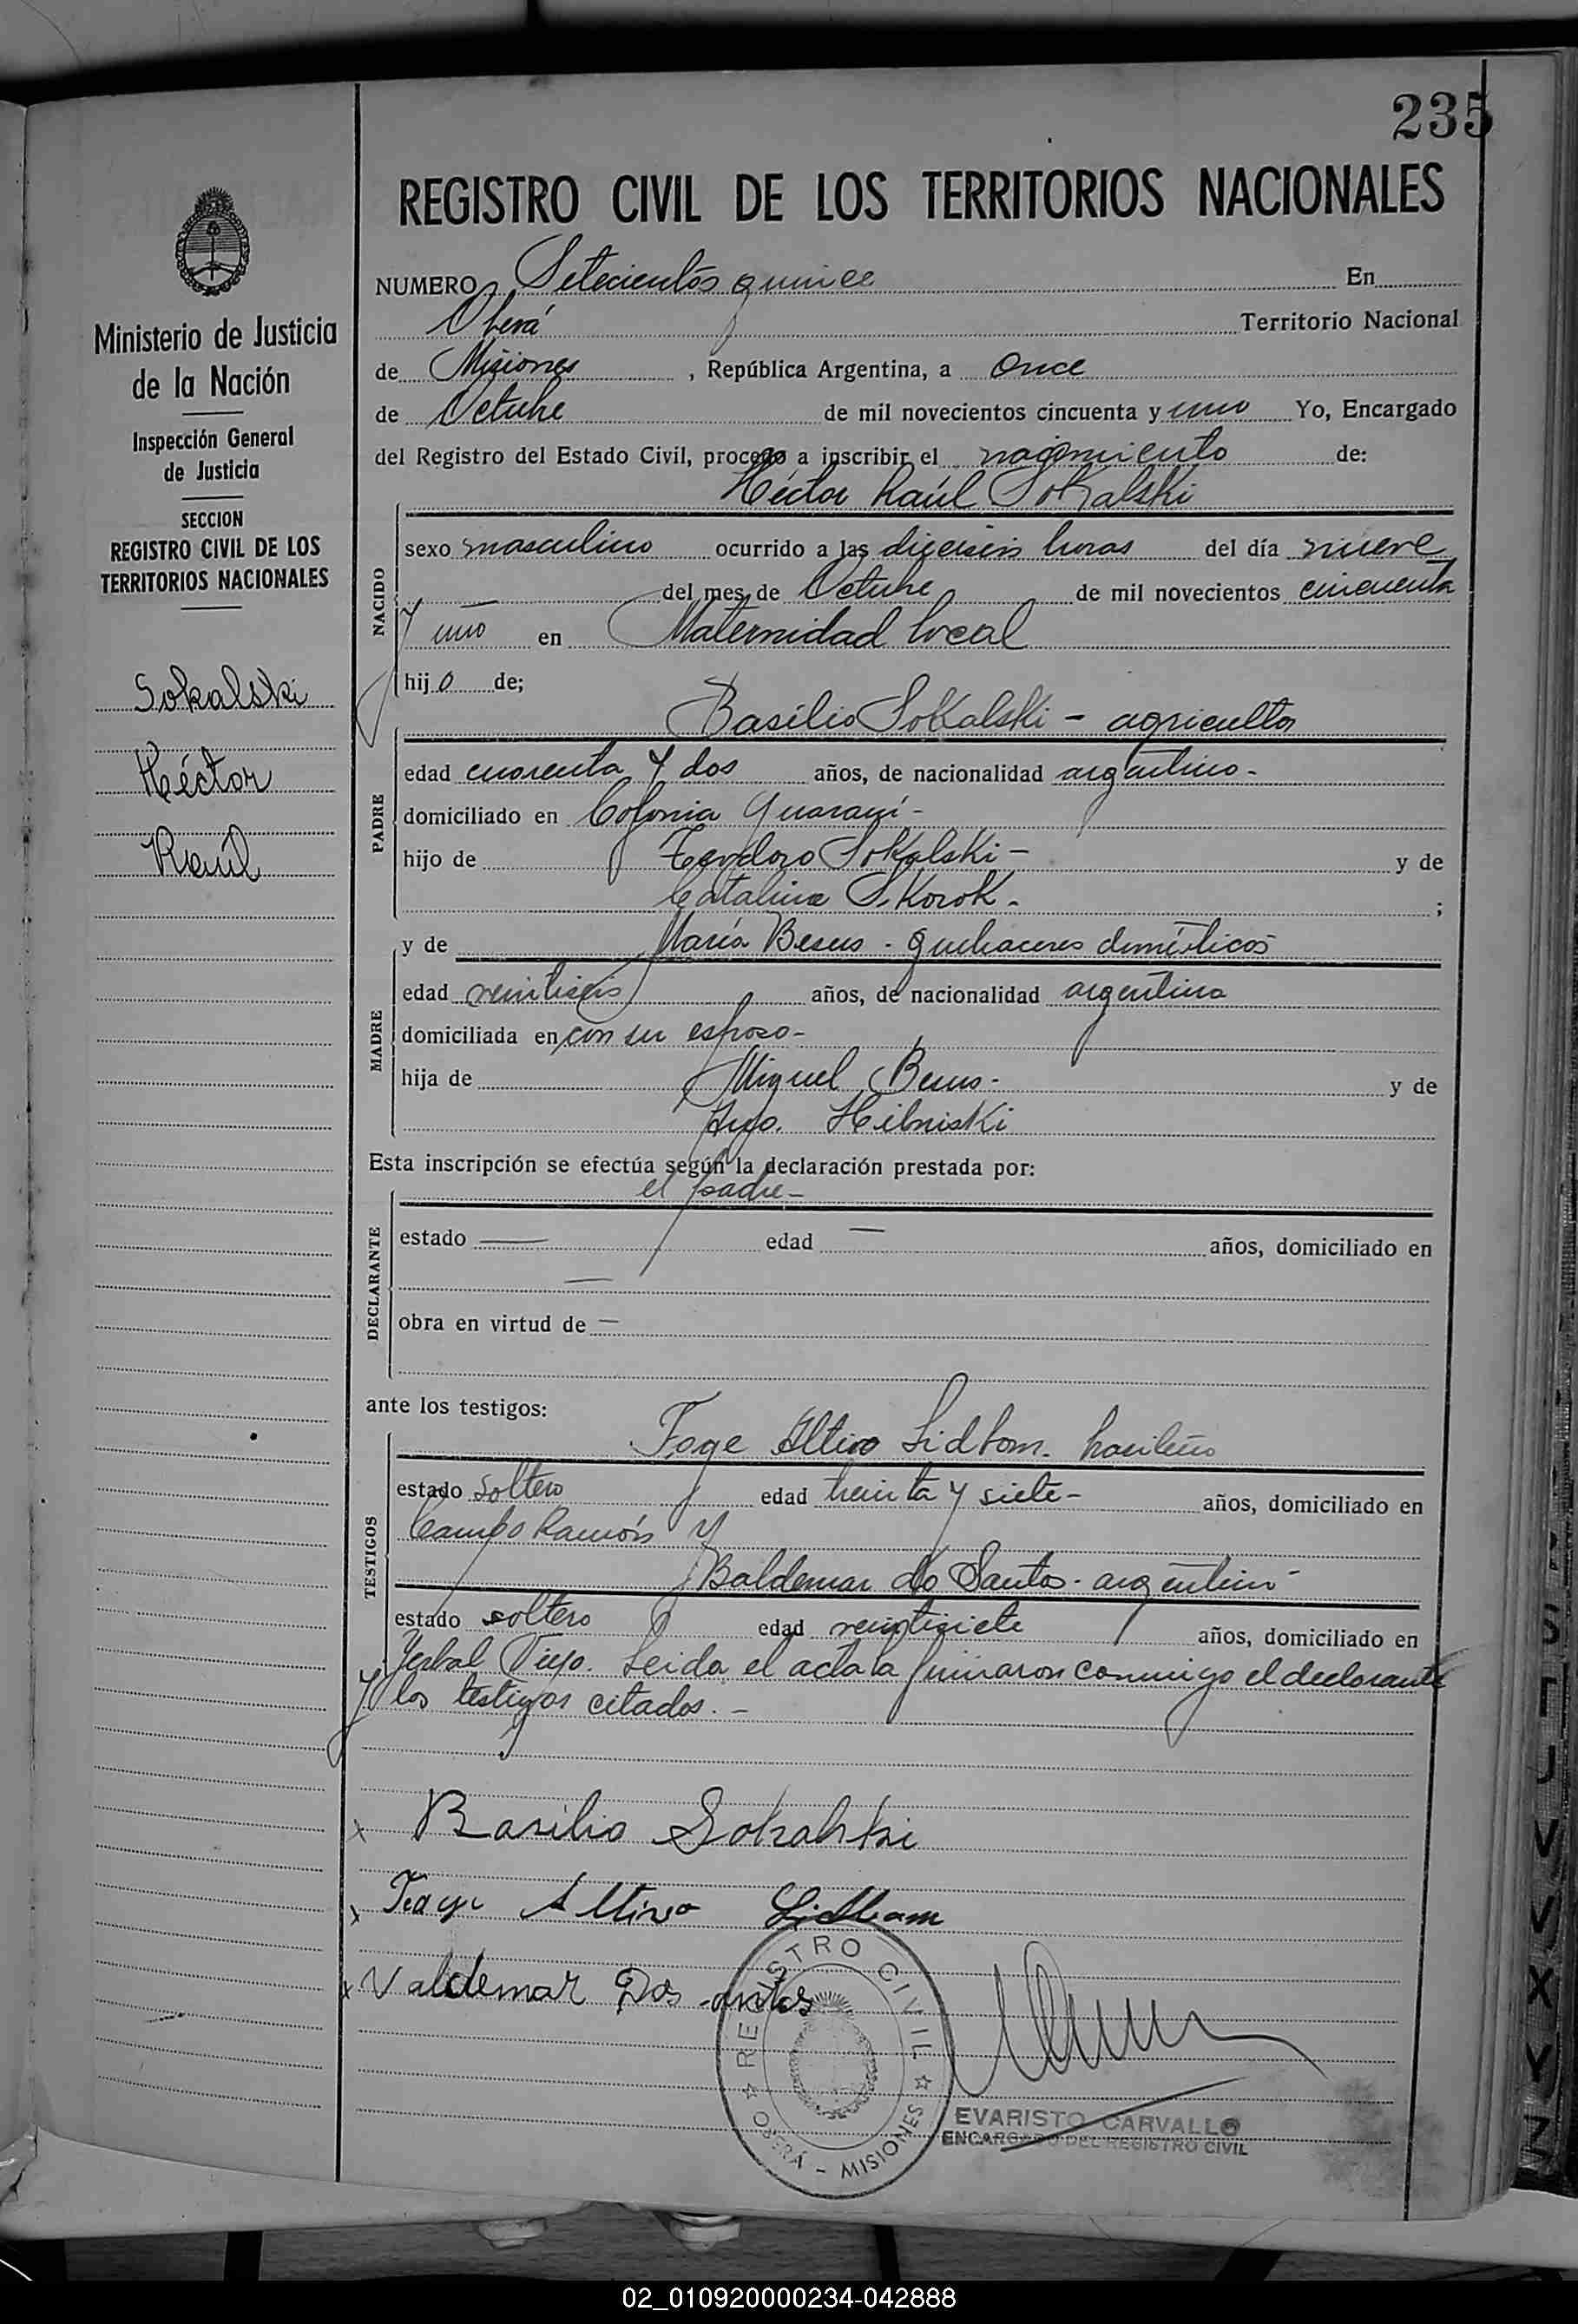 235
REGISTRO CIVIL DE LOS TERRITORIOS NACIONALES
Ministerio de Justicia
de la Nación
Inspección General
de Justicia
SECCION
REGISTRO CIVIL DE LOS
TERRITORIOS NACIONALES
Sokalski
Héctor
Raúl
NUMERO Setecientos quince En
Oberá Territorio Nacional
de Misiones, República Argentina, a once
de Octubre de mil novecientos cincuenta y uno Yo, Encargado
del Registro del Estado Civil, procedo a inscribir el nacimiento de:
Héctor Raúl Sokalski
NACIDO
sexo masculino ocurrido a las dieciseis horas del día nueve
— del mes de Octubre de mil novecientos cincuenta
y uno en Maternidad local
hijo de;
Basilio Sokalski - agricultor
PADRE
edad cuarenta y dos años, de nacionalidad argentino-
domiciliado en Colonia Guaraní-
hijo de Teodoro Sokalski- y de
Catalina Skorok. ;
MADRE
y de María Besus - quehaceres domésticos
edad veintiseis años, de nacionalidad argentina
domiciliada en con su esposo-
hija de Miguel Besus- y de
Hilniski
Esta inscripción se efectúa según la declaración prestada por:
el padre-
DECLARANTE
estado — edad — años, domiciliado en
—
obra en virtud de —
ante los testigos:
TESTIGOS
Altivo Lidtom. brasileño
estado soltero edad treinta y siete- años, domiciliado en
Campo Ramón y
Baldemar do Santos - argentino-
estado soltero edad veintisiete años, domiciliado en
Yerbal Viejo. Leida el acta la firmaron conmigo el declarante
y los testigos citados.-
x Basilio Sokalski
x Altivo
x Valdemar Dos antos
REGISTRO CIVIL
OBERÁ - MISIONES
EVARISTO CARVALLO
ENCARGADO DEL REGISTRO CIVIL
S
T
U
V
X
Y
Z
02_010920000234-042888